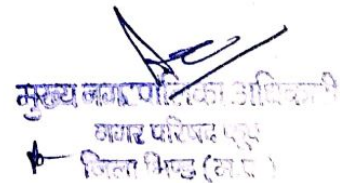 मुख्य नगरपालिका अधिकारी
नगर परिषद
जिला भिण्ड (म.प्र.)